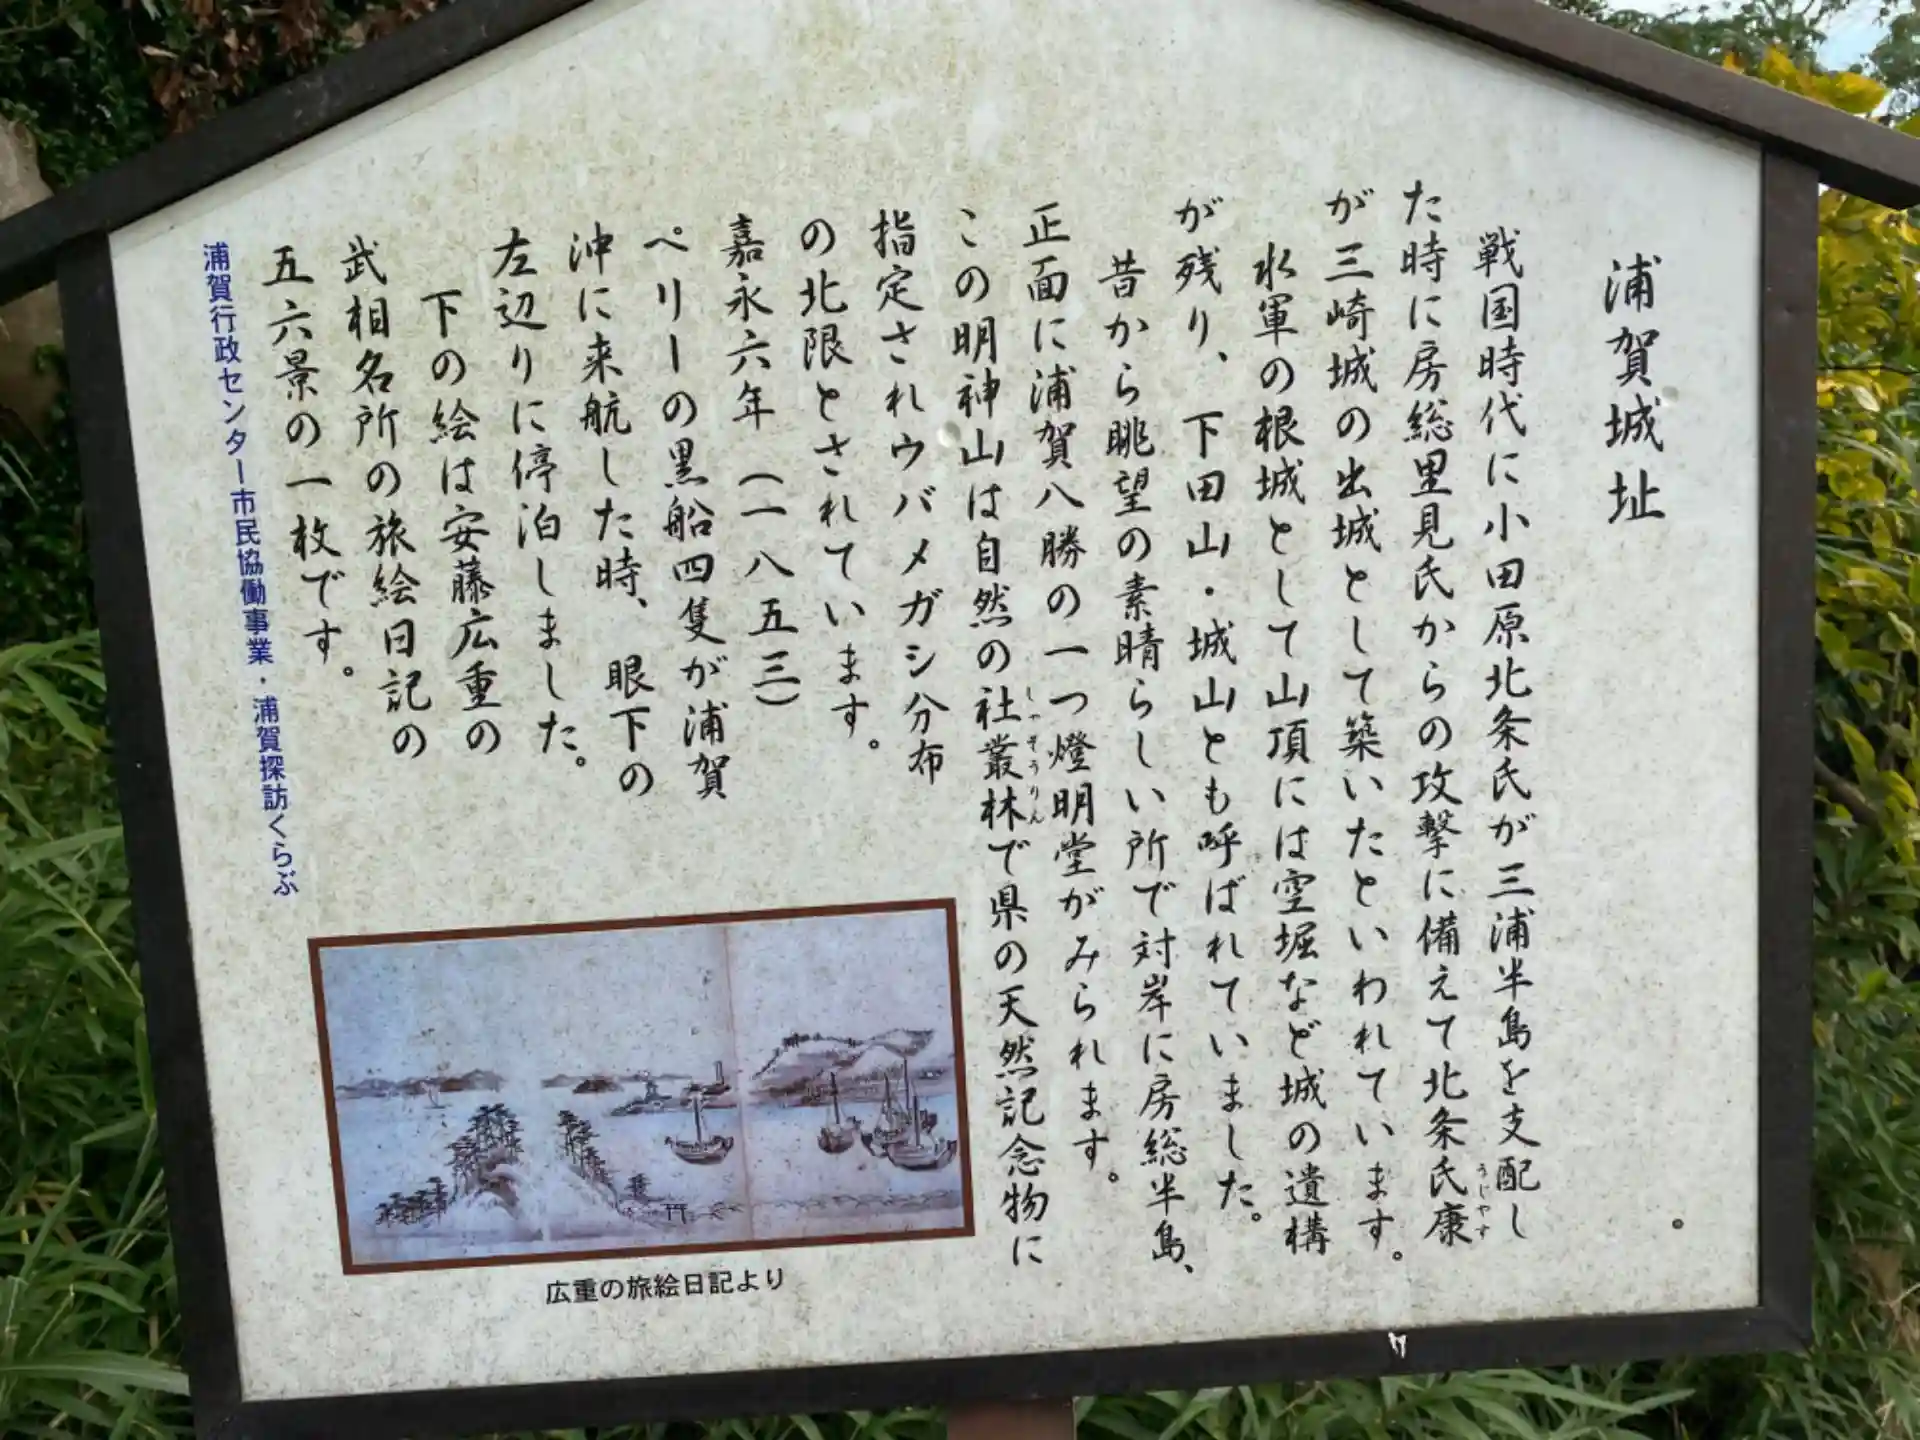 浦賀城址
戦国時代に小田原北条氏が三浦半島を支配し
た時に房総里見氏からの攻撃に備えて北条氏康
うじやす
が三崎城の出城として築いたといわれています。
水軍の根城として山頂には空堀など城の遺構
が残り、下田山・城山とも呼ばれていました。
昔から眺望の素晴らしい所で対岸に房総半島、
正面に浦賀八勝の一つ燈明堂がみられます。
この明神山は自然の社叢林で県の天然記念物に
しゃそうりん
指定されウバメガシ分布
の北限とされています。
嘉永六年（一八五三）
ペリーの黒船四隻が浦賀
沖に来航した時、眼下の
左辺りに停泊しました。
下の絵は安藤広重の
武相名所の旅絵日記の
五六景の一枚です。
浦賀行政センター市民協働事業・浦賀探訪くらぶ
広重の旅絵日記より